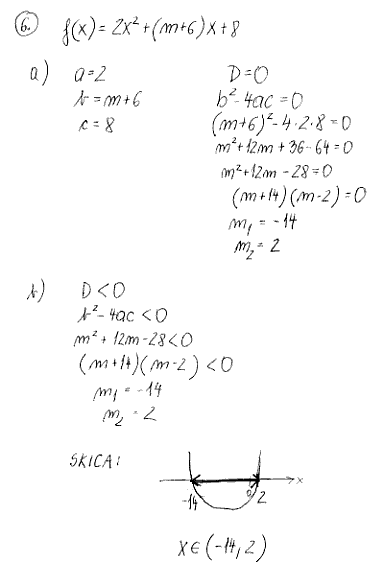 6. f(x) = 2x² + (m+6)x + 8
a) a = 2
b = m+6
c = 8
D = 0
b² - 4ac = 0
(m+6)² - 4·2·8 = 0
m² + 12m + 36 - 64 = 0
m² + 12m - 28 = 0
(m+14)(m-2) = 0
m₁ = -14
m₂ = 2
b) D < 0
b² - 4ac < 0
m² + 12m - 28 < 0
(m+14)(m-2) < 0
m₁ = -14
m₂ = 2
SKICA:
-14 0 2 x
x ∈ (-14, 2)